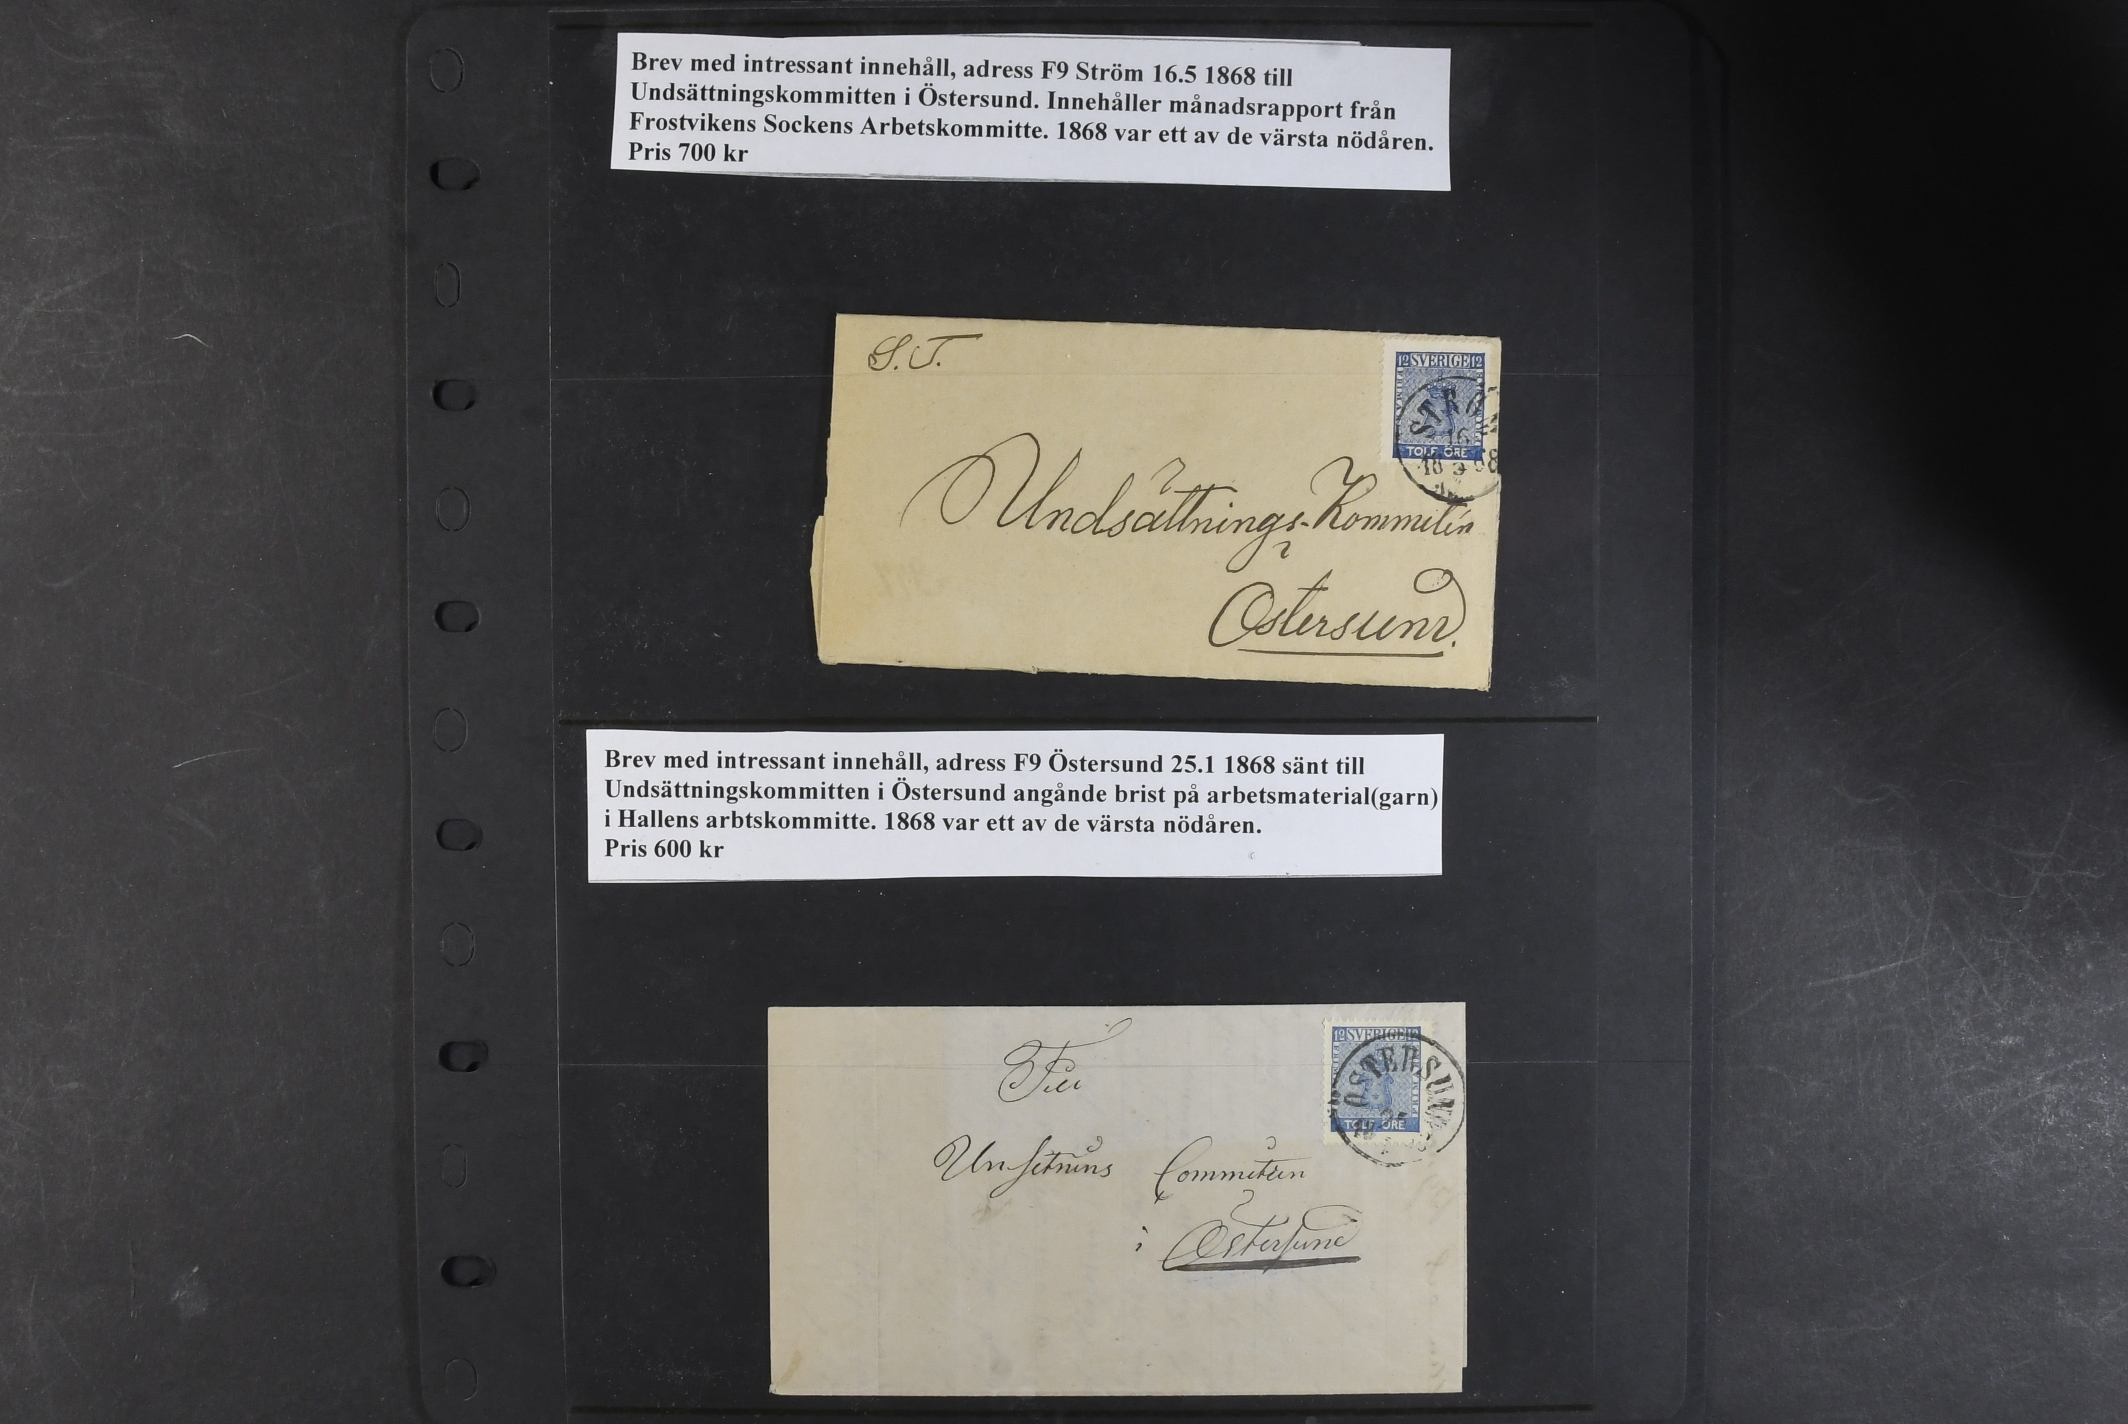 Brev med intressant innehåll, adress F9 Ström 16.5 1868 till
Undsättningskommitten i Östersund. Innehåller månadsrapport från
Frostvikens Sockens Arbetskommitte. 1868 var ett av de värsta nödåren.
Pris 700 kr
S.T.
12 SVERIGE 12
TOLF ÖRE
STRÖM
16
18 5 68
Undsättnings-Kommitén
Östersund.
Brev med intressant innehåll, adress F9 Östersund 25.1 1868 sänt till
Undsättningskommitten i Östersund angånde brist på arbetsmaterial(garn)
i Hallens arbtskommitte. 1868 var ett av de värsta nödåren.
Pris 600 kr
12 SVERIGE 12
TOLF ÖRE
ÖSTERSUND
Till
Unsetnins Commiteen
i Östersund